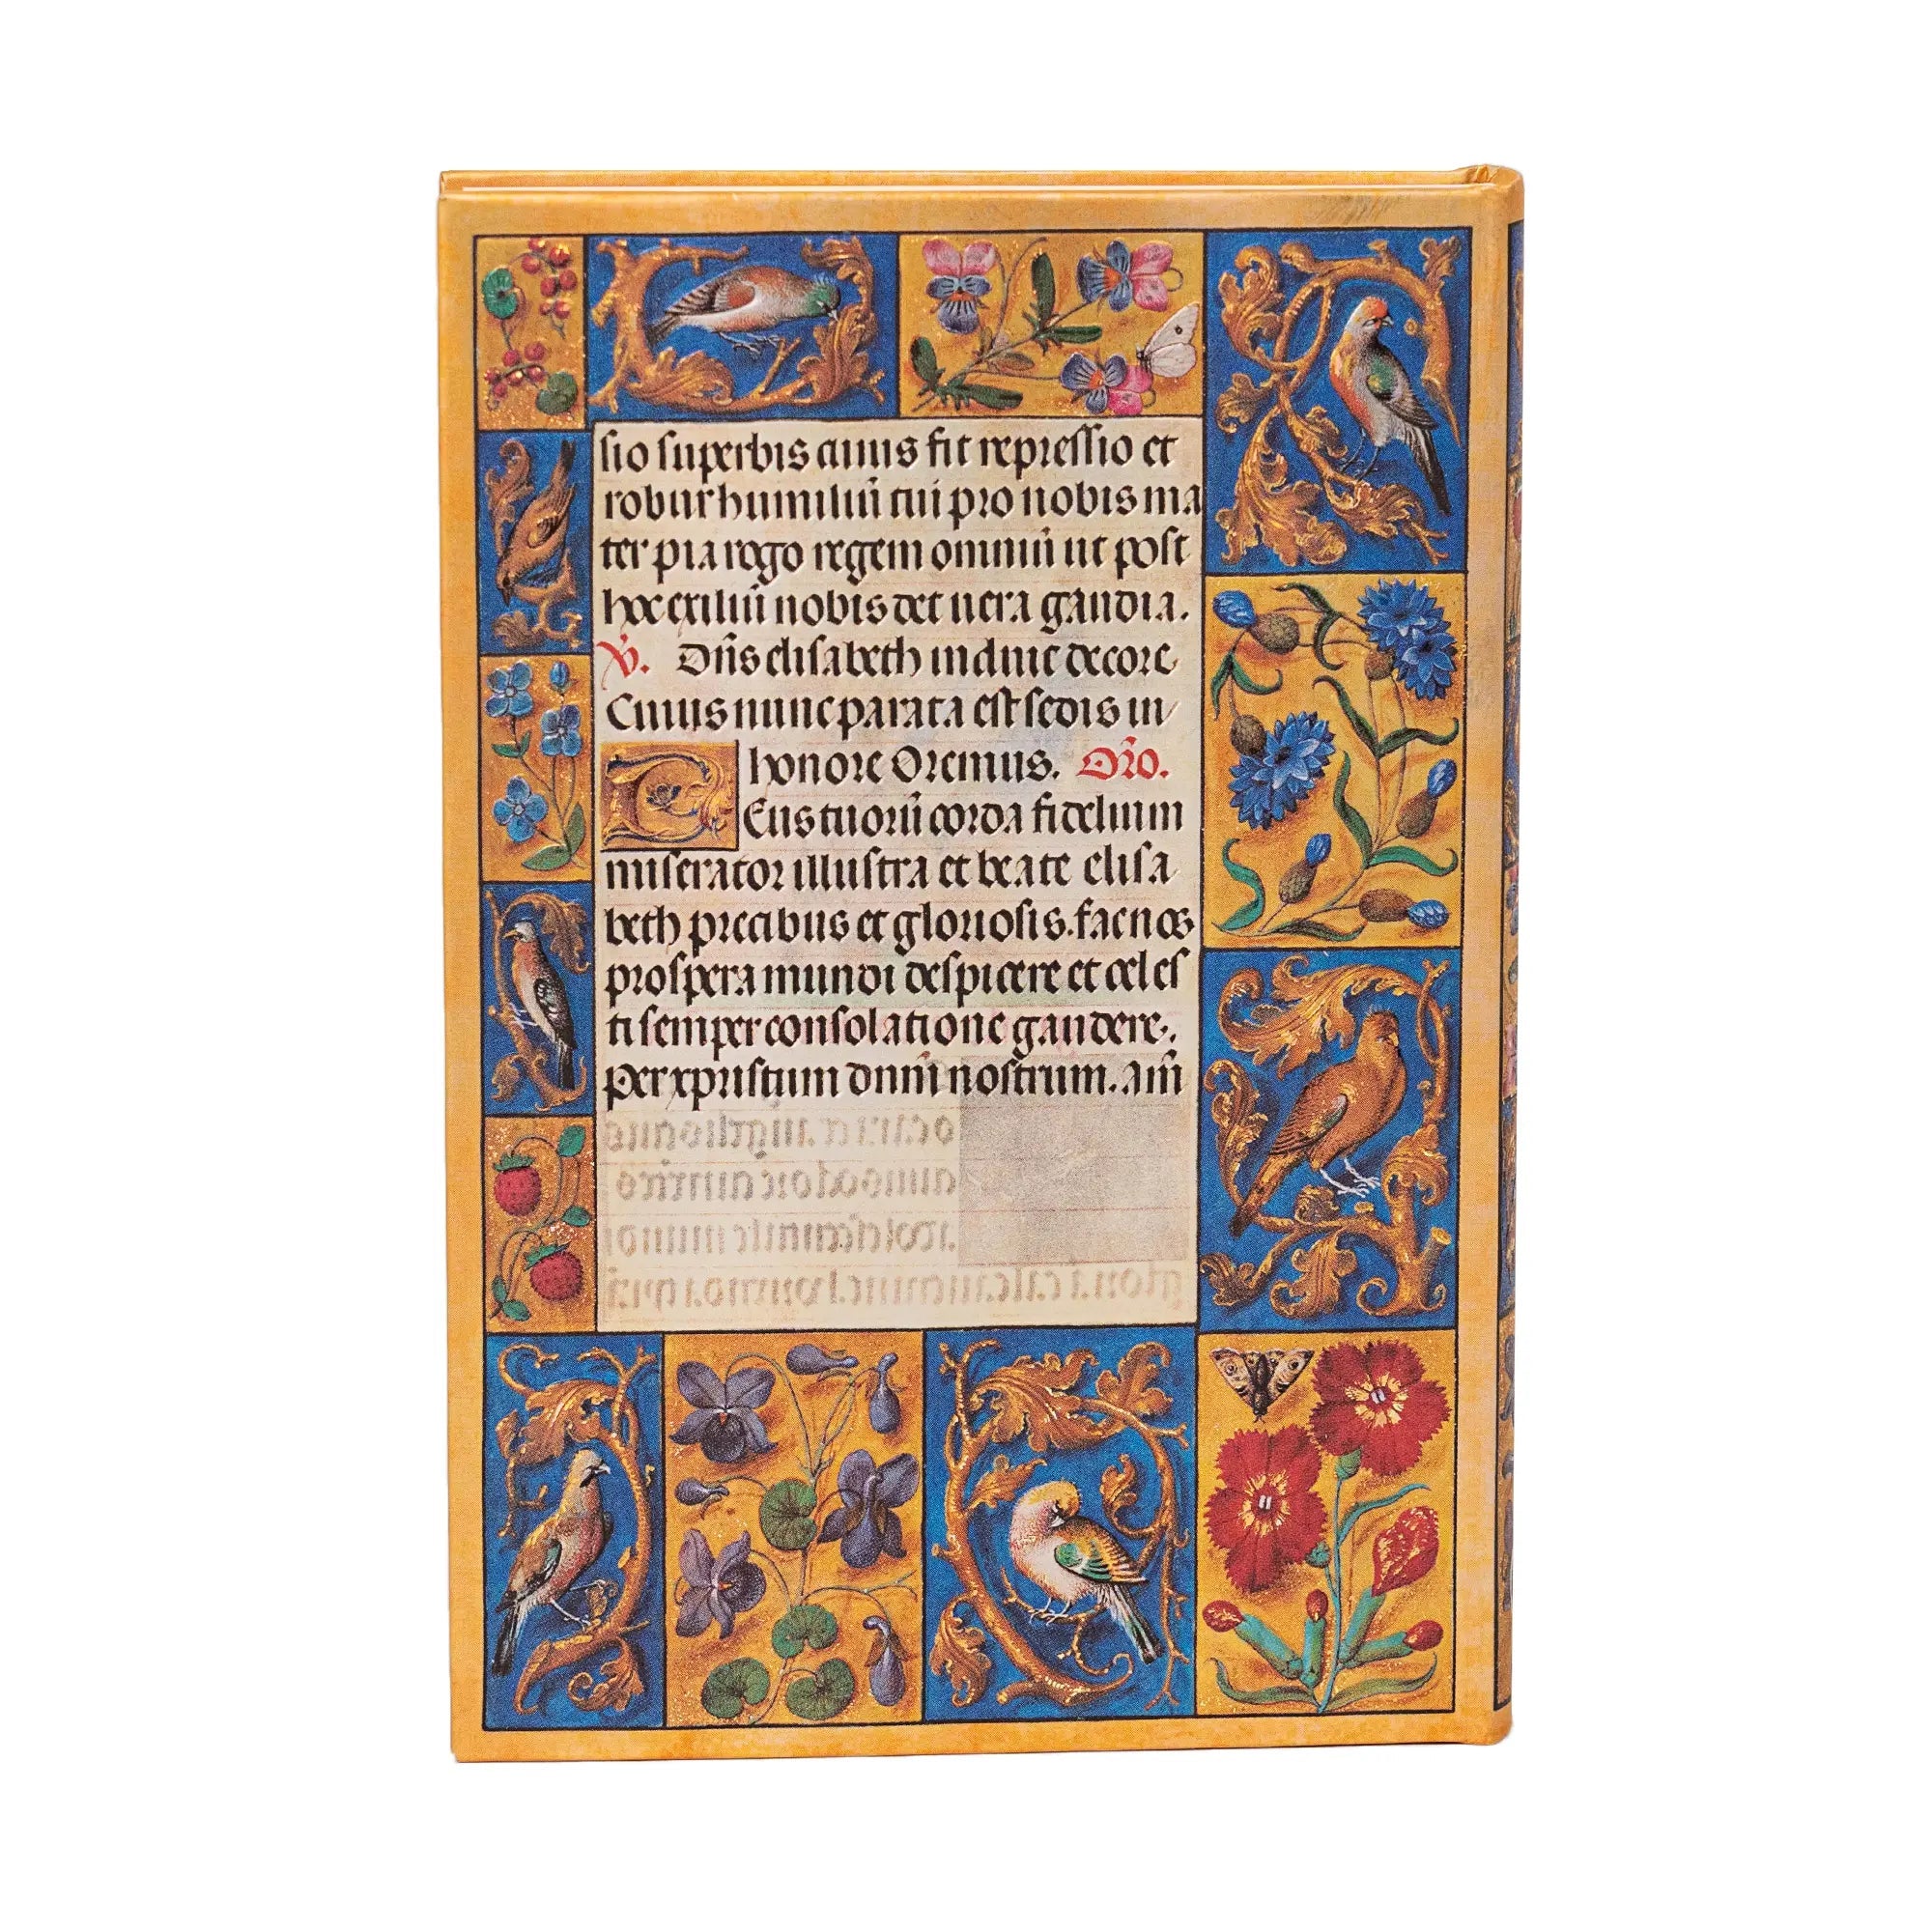 sio superbis cuius fit repressio et
robur humiliū tui pro nobis ma
ter pia rogo regem omniū ut post
hoc exiliū nobis det uera gaudia.
V̄. Dn̄s elisabeth induit decore
Cuius nunc parata est sedis in
honore Oremus. Or̄o.
Deus tuorū corda fidelium
miserator illustra et beate elisa
beth precibus et gloriosis. fac nos
prospera mundi despicere et celes
ti semper consolatione gaudere.
Per xpristum dnm̄ nostrum. Am̄